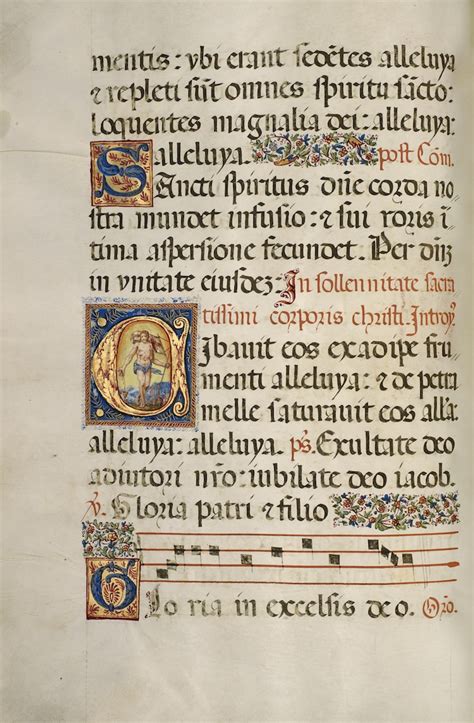 mentis: vbi erant sedētes alleluya
⁊ repleti sūt omnes spiritu sācto:
loquentes magnalia dei: alleluya:
alleluya. post Cōm.
Sancti spiritus dn̄e corda no
stra mundet infusio: ⁊ sui roris ī
tima aspersione fecundet. Per dn̄ȝ
in vnitate eiusdeȝ: In sollennitate sacra
tissimi corporis christi. Introyˢ.
Cibavit eos exadipe fru
menti alleluya: ⁊ de petra
melle saturavit eos alľa:
alleluya: alleluya. ps̄. Exultate deo
adiutori nr̄o: iubilate deo iacob.
℣. Gloria patri ⁊ filio
Glo ria in excelsis deo. Orō.